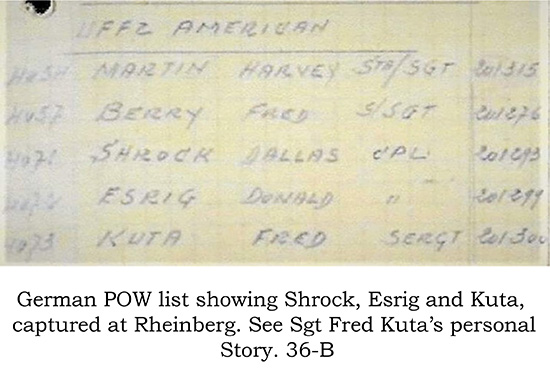 UFFZ AMERICAN
MARTIN HARVEY STB/SGT 201315
4057 BERRY FRED S/SGT 201276
SHROCK DALLAS CPL 201293
ESRIG DONALD " 201299
4073 KUTA FRED SERGT 201300
German POW list showing Shrock, Esrig and Kuta,
captured at Rheinberg. See Sgt Fred Kuta's personal
Story. 36-B